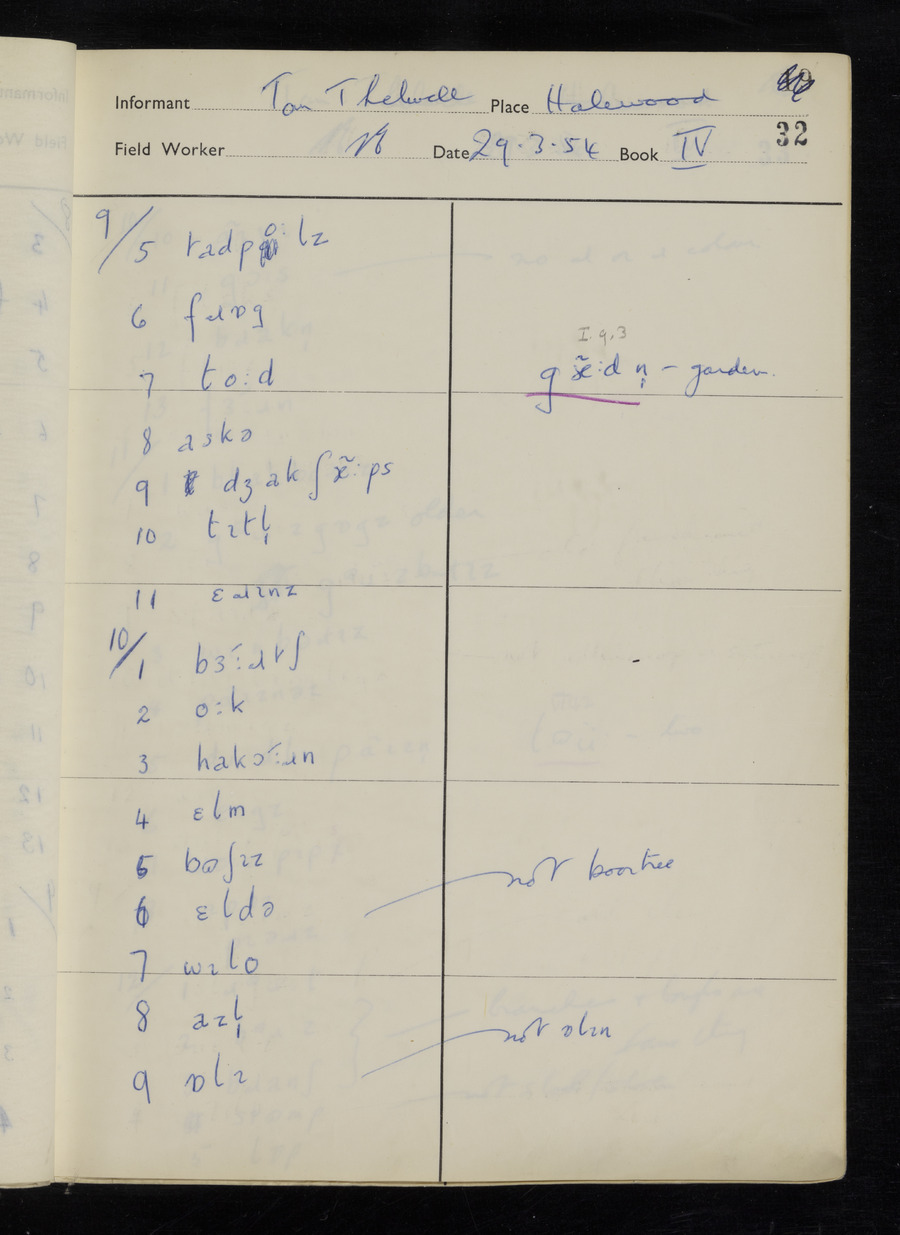 Informant Tom Thelwell Place Halewood
32
Field Worker Date 29.3.54 Book IV
9/5 tadpo:lz
6 fɹɒg
I.9.3
7 to:d gæ̃:dn̩ - garden.
8 askə
9 dʒakʃæ̃:ps
10 tɪtl̩
11 ɛəɹɪnz
10/1 bɜ́:ɹtʃ
2 o:k
3 hakɔ́:ɹn
4 ɛlm
5 bʊʃɪz
not boortree
6 ɛldə
7 wɪlo
8 azl̩
not ɒlɪn
9 ɒlɪ